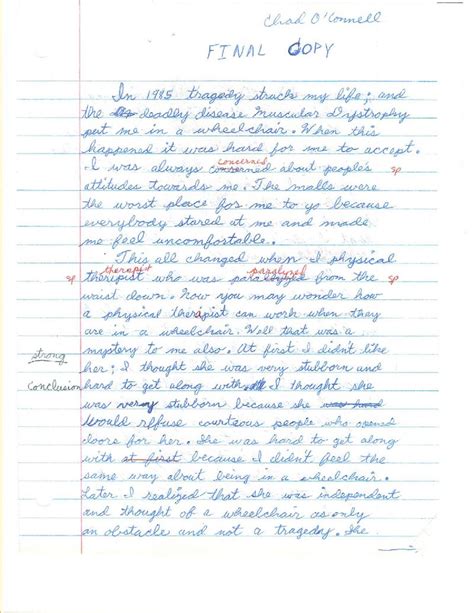 Chad O'Connell
FINAL COPY
In 1985 tragedy struck my life; and
the deadly disease Muscular Dystrophy
put me in a wheelchair. When this
happened it was hard for me to accept.
concerned
I was always conserned about people's sp
attitudes towards me. The malls were
the worst place for me to go because
everybody stared at me and made
me feel uncomfortable.
This all changed when I physical
therapist paralyzed
sp theripist who was from the sp
waist down. Now you may wonder how
a physical therapist can work when they
are in a wheelchair. Well that was a
mystery to me also. At first I didn't like
strong
her; I thought she was very stubborn and
Conclusion hard to get along with. I thought she
was very stubborn because she was hard
Would refuse courteous people who opened
doore for her. She was hard to get along
with at first because I didn't feel the
same way about being in a wheelchair.
Later I realized that she was independent
and thought of a wheelchair as only
an obstacle and not a tragedy. She